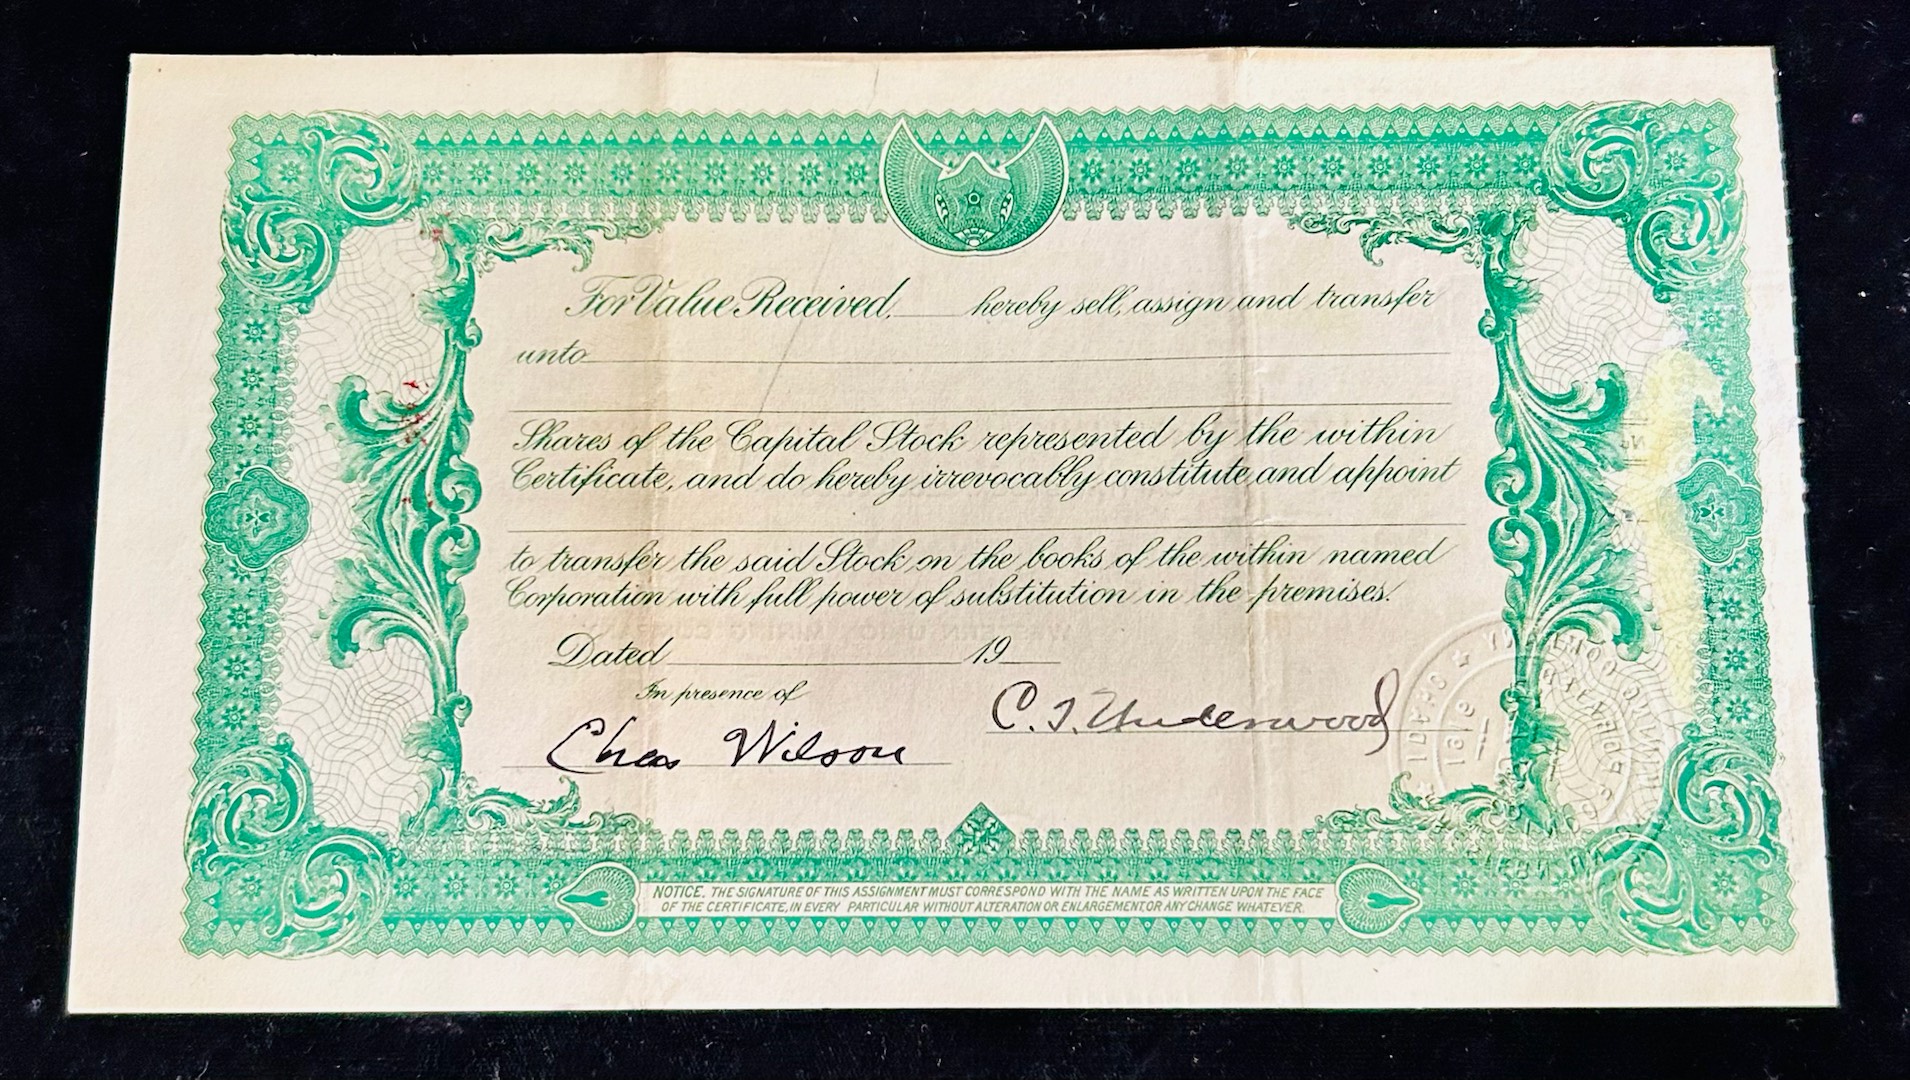 For Value Received, hereby sell, assign and transfer
unto
Shares of the Capital Stock represented by the within
Certificate, and do hereby irrevocably constitute and appoint
to transfer the said Stock on the books of the within named
Corporation with full power of substitution in the premises.
Dated 19
In presence of
Chas Wilson
C. I. Underwood
NOTICE. THE SIGNATURE OF THIS ASSIGNMENT MUST CORRESPOND WITH THE NAME AS WRITTEN UPON THE FACE
OF THE CERTIFICATE, IN EVERY PARTICULAR WITHOUT ALTERATION OR ENLARGEMENT, OR ANY CHANGE WHATEVER.